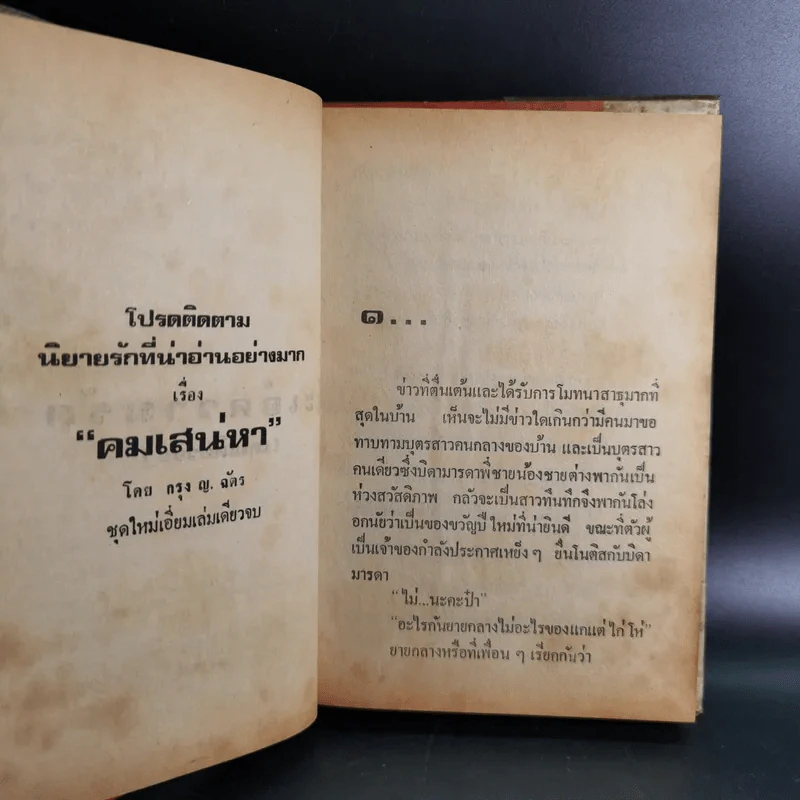 โปรดติดตาม
นิยายรักที่น่าอ่านอย่างมาก
เรื่อง
“คมเสน่หา”
โดย กรุง ญ. ฉัตร
ชุดใหม่เอี่ยมเล่มเดียวจบ
๑...
ข่าวที่ตื่นเต้นและได้รับการโมทนาสาธุมากที่
สุดในบ้าน เห็นจะไม่มีข่าวใดเกินกว่ามีคนมาขอ
ทาบทามบุตรสาวคนกลางของบ้าน และเป็นบุตรสาว
คนเดียวซึ่งบิดามารดาพี่ชายน้องชายต่างพากันเป็น
ห่วงสวัสดิภาพ กลัวจะเป็นสาวทึนทึกจึงพากันโล่ง
อกนัยว่าเป็นของขวัญปีใหม่ที่น่ายินดี ขณะที่ตัวผู้
เป็นเจ้าของกำลังประกาศเหยง ๆ ยื่นโนติสกับบิดา
มารดา
“ไม่...นะคะป๋า”
“อะไรกันยายกลางไม่อะไรของแกแต่ไก่โห่”
ยายกลางหรือที่เพื่อน ๆ เรียกกันว่า